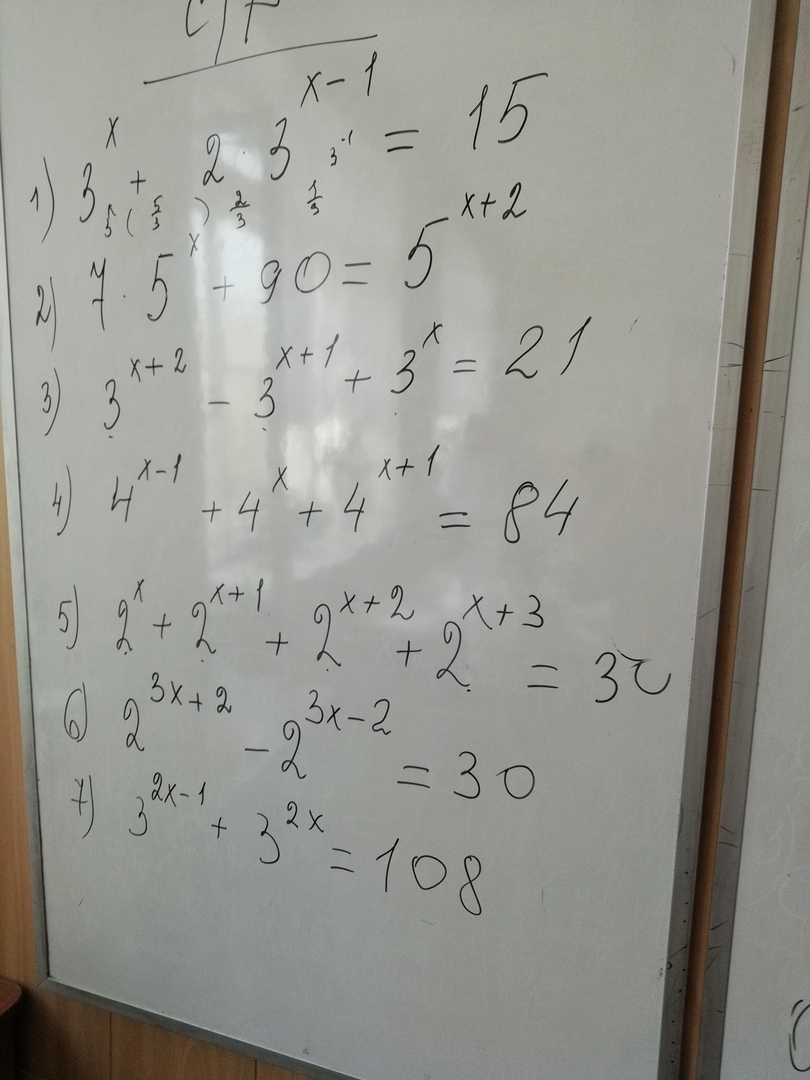 С/Р
1) 3^x + 2 · 3^(x-1) = 15
5 ( 5/3 ) 2/3 1/3 3^-1
2) 7 · 5^x + 90 = 5^(x+2)
3) 3^(x+2) - 3^(x+1) + 3^x = 21
4) 4^(x-1) + 4^x + 4^(x+1) = 84
5) 2^x + 2^(x+1) + 2^(x+2) + 2^(x+3) = 30
6) 2^(3x+2) - 2^(3x-2) = 30
7) 3^(2x-1) + 3^(2x) = 108